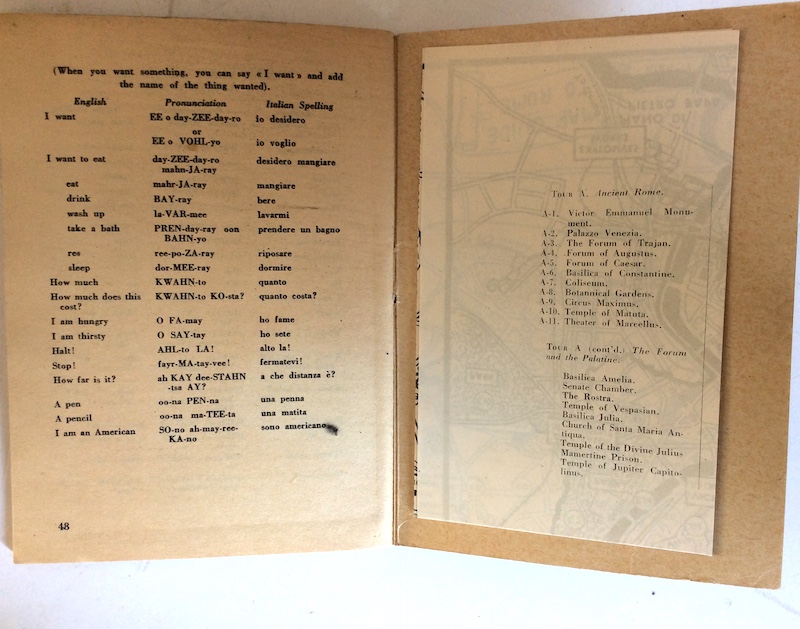 (When you want something, you can say « I want » and add
the name of the thing wanted).
English Pronunciation Italian Spelling
I want EE o day-ZEE-day-ro io desidero
or
EE o VOHL-yo io voglio
I want to eat day-ZEE-day-ro desidero mangiare
mahn-JA-ray
eat mahr-JA-ray mangiare
drink BAY-ray bere
wash up la-VAR-mee lavarmi
take a bath PREN-day-ray oon prendere un bagno
BAHN-yo
res ree-po-ZA-ray riposare
sleep dor-MEE-ray dormire
How much KWAHN-to quanto
How much does this KWAHN-to KO-sta? quanto costa?
cost?
I am hungry O FA-may ho fame
I am thirsty O SAY-tay ho sete
Halt! AHL-to LA! alto la!
Stop! fayr-MA-tay-vee! fermatevi!
How far is it? ah KAY dee-STAHN a che distanza è?
-tsa AY?
A pen oo-na PEN-na una penna
A pencil oo-na ma-TEE-ta una matita
I am an American SO-no ah-may-ree- sono americano
KA-no
48
TOUR A. Ancient Rome.
A-1. Victor Emmanuel Monu-
ment.
A-2. Palazzo Venezia.
A-3. The Forum of Trajan.
A-4. Forum of Augustus.
A-5. Forum of Caesar.
A-6. Basilica of Constantine.
A-7. Coliseum.
A-8. Botannical Gardens.
A-9. Circus Maximus.
A-10. Temple of Matuta.
A-11. Theater of Marcellus.
TOUR A (cont'd.) The Forum
and the Palatine.
Basilica Amelia.
Senate Chamber.
The Rostra.
Temple of Vespasian.
Basilica Julia.
Church of Santa Maria An-
tiqua.
Temple of the Divine Julius
Mamertine Prison.
Temple of Jupiter Capito-
linus.